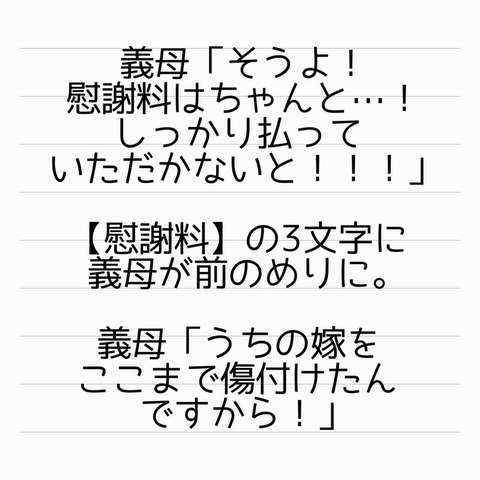 義母「そうよ！
慰謝料はちゃんと…！
しっかり払って
いただかないと！！！」
【慰謝料】の3文字に
義母が前のめりに。
義母「うちの嫁を
ここまで傷付けたん
ですから！」